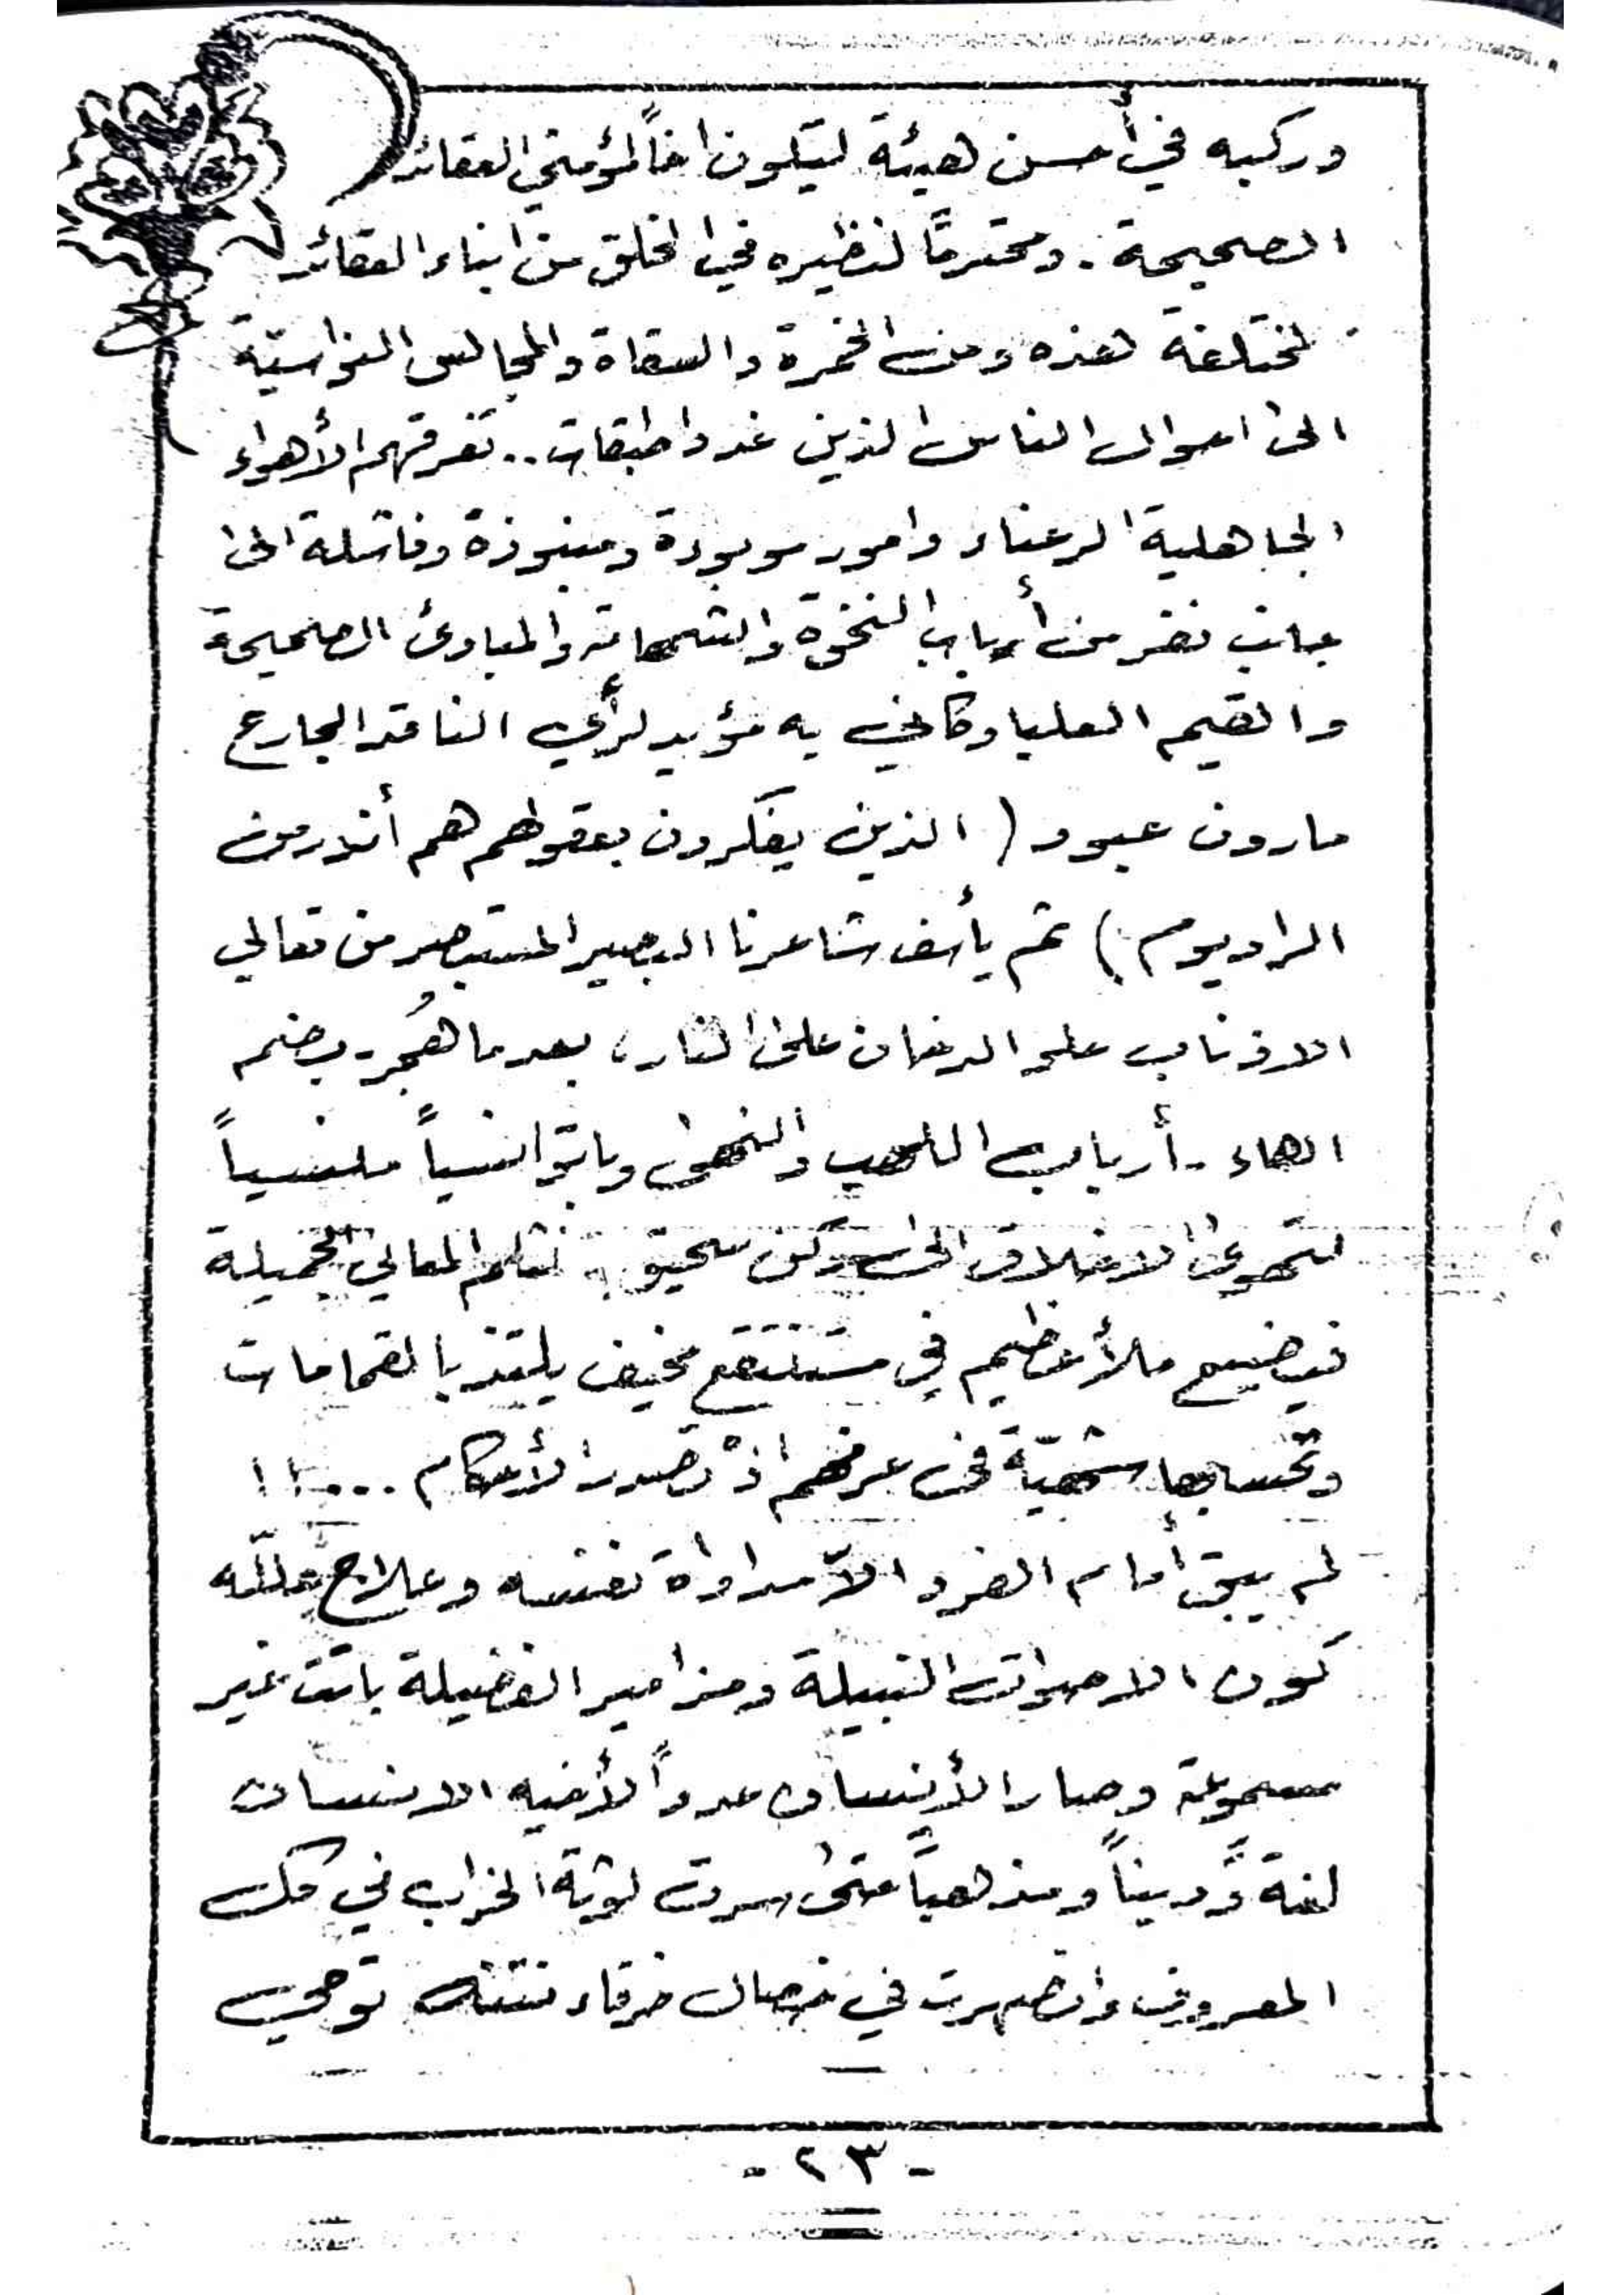 وركبه في أحسن هيئة ليكون اخاً لمؤمني العقائد
الصحيحة . ومحترمًا لنظيره في الخلق من ابناء العقائد
المختلفة هذه ومن الخمرة والسقاة والمجالس النواسيّة
الى احوال الناس الذين غدوا طبقات .. تفرقهم الأهواء
الجاهلية الرعناء وامور موبوءة ومنبوذة وفاشلة الى
جانب نفر من أرباب النخوة والشهامة والمبادئ الصحيحة
والقيم العليا وكاني به مؤيد لرأي الناقد البارع
مارون عبود ( الذين يفكرون بعقولهم هم أندر من
الراديوم ) ثم يأسف شاعرنا البصير المستبصر من تعالي
الاذناب علو الدخان على النار ، بعدما هُجر - بضم
الهاء - أرباب اللهب والنهى وباتوا نسياً منسياً
لتهوى الاخلاق الى درك سحيق .. تثلم المعاني الجميلة
فيضيع ملأ عظيم في مستنقع مخيف يلتذ بالقمامات
وتحسبها شهيّة في عرفهم اذْ تصدر الأحكام ... !!
لم يبق أمام الفرد الاّ مداواة نفسه وعلاج علله
كون الاصوات النبيلة ومزامير الفضيلة باتت غير
مسموعة وصار الأنسان عدواً لأخيه الانسان
لغةً وديناً ومذهباً حتى سرت لوثة الخراب في فلك
المعروف وانصهرت في خصال خرقاء نتنة توحي
- ٢٣ -